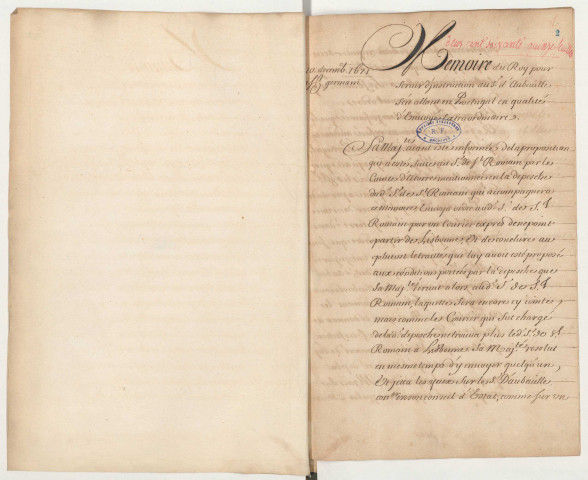 2
deux cent soixante
10 decemb. 1671
St germain
Memoire du Roy pour
servir d'instruction au Sr. d'Aubeville
s'en allant en Portugal en qualité
d'Envoyé extraordinaire.
Sa Maj.té ayant esté informée de la proposition
qui a esté faite au Sr. de St. Romain par le
Comte d'
mentionnée en la depesche
dud. Sr. de St. Romain qui accompagnera
ce memoire Envoya aud. Sr. de St.
Romain par un Courier exprés de ne point
partir de Lisbonne, Et de conclure au
plustost le traitté qui luy avoit esté proposé
aux conditions portées par la depesche que
Sa Maj.té écrivit alors aud. Sr. de St.
Romain, laquelle sera encore cy jointe,
mais comme le Courier qui fut chargé
de lad. depesche ne trouva plus led. Sr. de St.
Romain a Lisbonne Sa Maj.té resolut
en mesme temps d'y envoyer quelqu'un,
Et jetta les yeux sur le Sr. D'aubeville
con.er en son conseil d'Estat, comme sur un